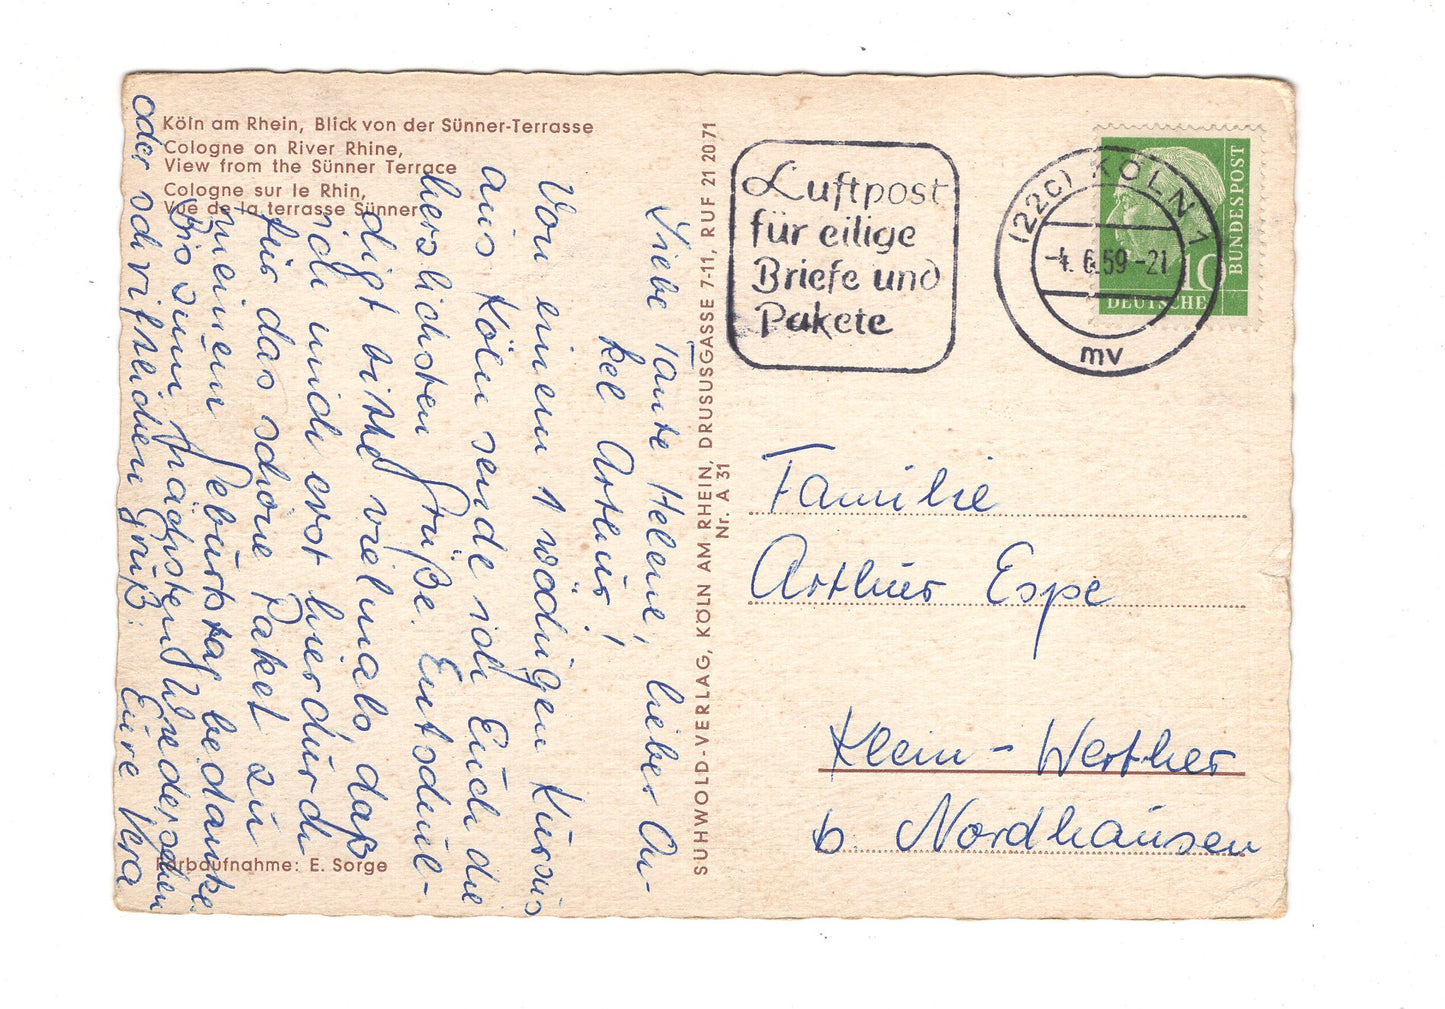 Köln am Rhein, Blick von der Sünner-Terrasse
Cologne on River Rhine,
View from the Sünner Terrace
Cologne sur le Rhin,
Vue de la terrasse Sünner
Liebe Tante Helene, lieber On-
kel Arthur!
Von einem 1 wöchigen Kursus
aus Köln sende ich Euch die
herzlichsten Grüße. Entschul-
digt bitte vielmals, daß
ich mich erst hierdurch
für das schöne Paket zu
meinem Geburtstag bedanke.
Bis zum nächsten Wiedersehen
oder schriftlichen Gruß: Eure Vera
Farbaufnahme: E. Sorge
SUHWOLD-VERLAG, KÖLN AM RHEIN, DRUSUSGASSE 7-11, RUF 21 20 71
Nr. A 31
Luftpost
für eilige
Briefe und
Pakete
(22c) KÖLN 1
-4. 6. 59 -21
mv
DEUTSCHE
BUNDESPOST
10
Familie
Arthur Espe
Klein-Werther
b. Nordhausen